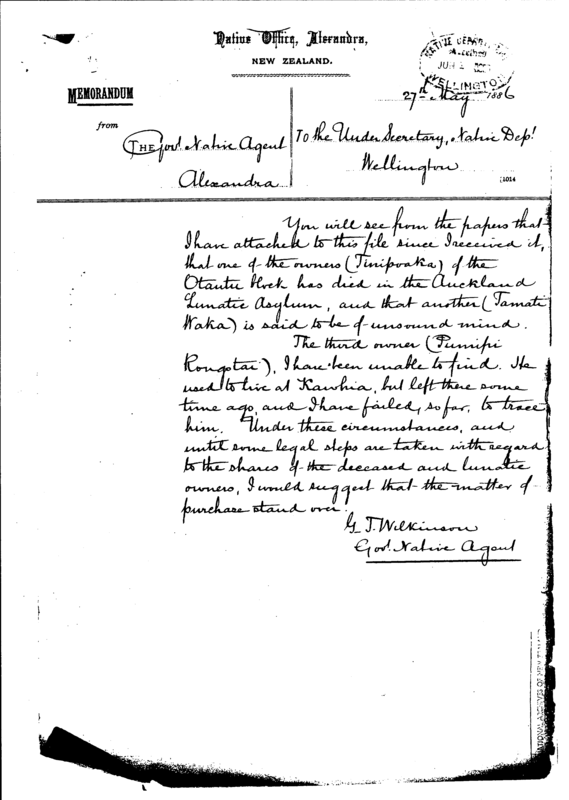 Native Office, Alexandra,
NEW ZEALAND.
NATIVE DEPARTMENT
RECEIVED
JUN
WELLINGTON
MEMORANDUM
27th May 1886
from
THE Gov! Native Agent
Alexandra
To the Under Secretary, Native Dep!
Wellington
1014
You will see from the papers that
I have attached to this file since I received it,
that one of the owners (Tinipoaka) of the
Otautu block has died in the Auckland
Lunatic Asylum, and that another (Tamati
Waka) is said to be of unsound mind.
The third owner (Pumipi
Rongotai), I have been unable to find. He
used to live at Kawhia, but left there some
time ago, and I have failed, so far, to trace
him. Under these circumstances, and
until some legal steps are taken with regard
to the shares of the deceased and lunatic
owners, I would suggest that the matter of
purchase stand over.
G T. Wilkinson
Gov! Native Agent
NATIONAL ARCHIVES OF NEW ZEALAND